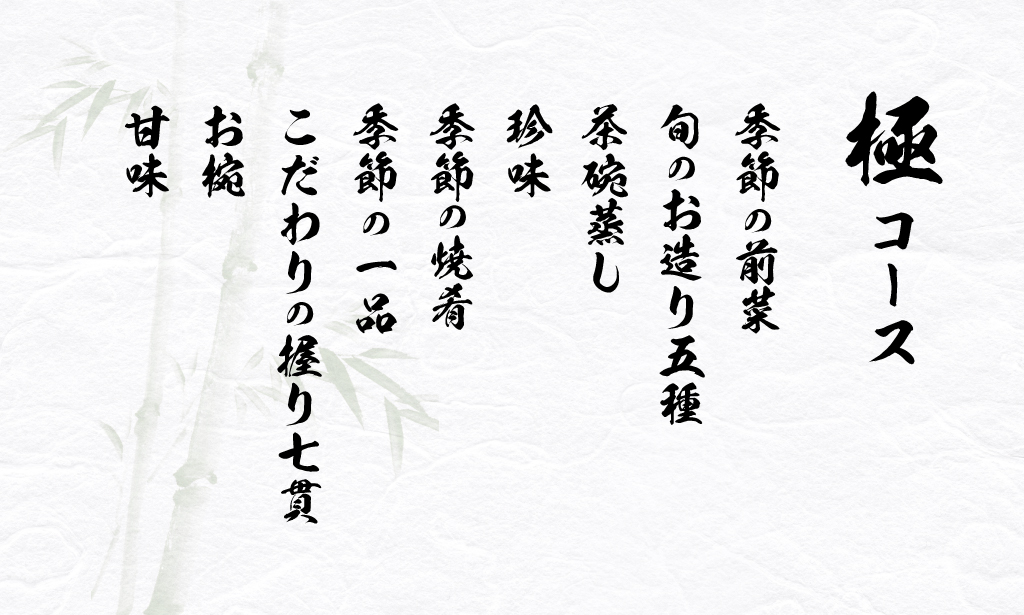 極コース
季節の前菜
旬のお造り五種
茶碗蒸し
珍味
季節の焼肴
季節の一品
こだわりの握り七貫
お椀
甘味